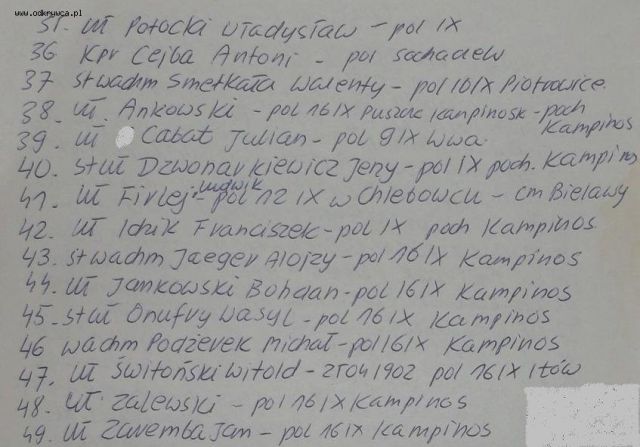 www.odkrywca.pl
51. uł Potocki Władysław - pol IX
36 Kpr Cejba Antoni - pol Sochaczew
37 st wachm Smetkała Walenty - pol 10 IX Piotrowice
38. uł. Ankowski - pol 16 IX Puszcz Kampinosk - poch Kampinos
39. uł Cabat Julian - pol 9 IX Wwa
40. st uł Dzwonarkiewicz Jerzy - pol IX poch. Kampinos
41. uł Firlej Ludwik - pol 12 IX w Chlebowcu - cm Bielawy
42. uł Idzik Franciszek - pol IX poch Kampinos
43. st wachm Jaeger Alojzy - pol 16 IX Kampinos
44. uł Jankowski Bohdan - pol 16 IX Kampinos
45. st uł Onufry Wasyl - pol 16 IX Kampinos
46 wachm Podżerek Michał - pol 16 IX Kampinos
47. uł Świtoński Witold - zr 04 1902 pol 16 IX Iłów
48. uł. Zalewski - pol 16 IX Kampinos
49. uł Zaremba Jan - pol 16 IX Kampinos